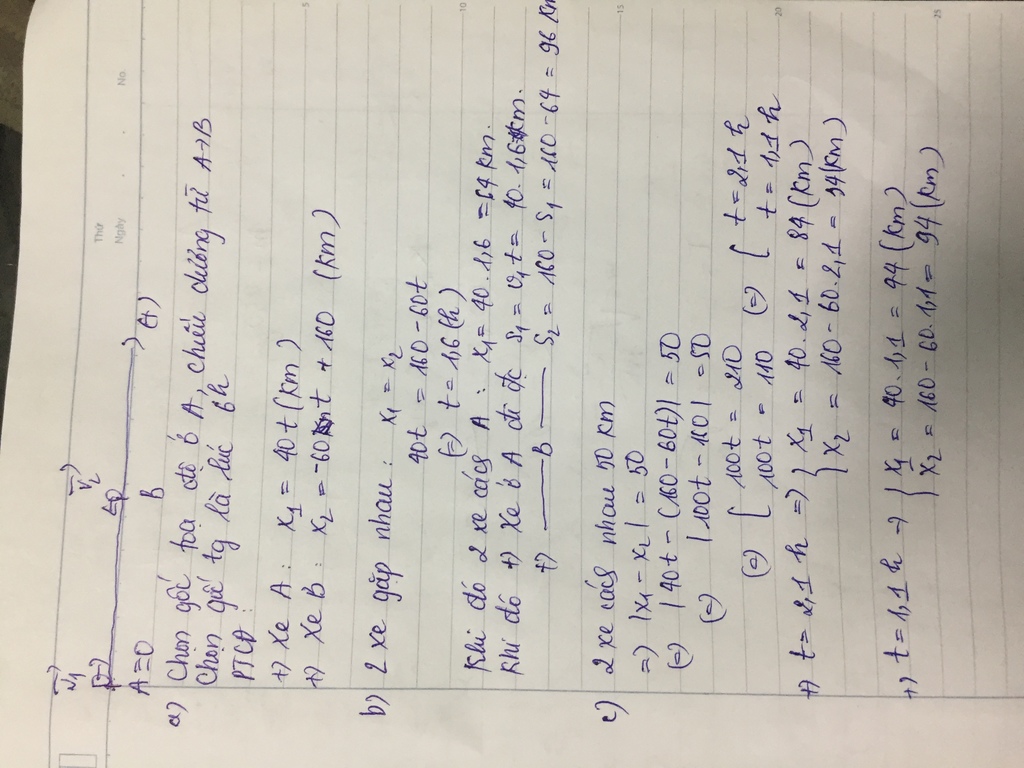 v₁
v₂
Thứ
Ngày . . No.
A≡0 B (+)
a) Chọn gốc toạ độ ở A, chiều dương từ A→B
Chọn gốc tg là lúc 6h
PTCĐ:
+) Xe A: x₁ = 40t (km)
+) Xe B: x₂ = -60t + 160 (km)
5
b) 2 xe gặp nhau: x₁ = x₂
40t = 160 - 60t
(=) t = 1,6 (h)
10
Khi đó 2 xe cách A: x₁ = 40.1,6 = 64 km.
Khi đó +) Xe ở A đi đc S₁ = v₁t = 40.1,6 km.
+) —— B —— S₂ = 160 - S₁ = 160 - 64 = 96 Km
c) 2 xe cách nhau 50 km
15
=) |x₁ - x₂| = 50
(=) |40t - (160 - 60t)| = 50
(=) |100t - 160| = 50
(=) [ 100t = 210 (=) [ t = 2,1 h
100t = 110 t = 1,1 h
20
+) t = 2,1 h =) { x₁ = 40.2,1 = 84 (km)
x₂ = 160 - 60.2,1 = 34 (km)
+) t = 1,1 h → { x₁ = 40.1,1 = 44 (km)
x₂ = 160 - 60.1,1 = 94 (km)
25